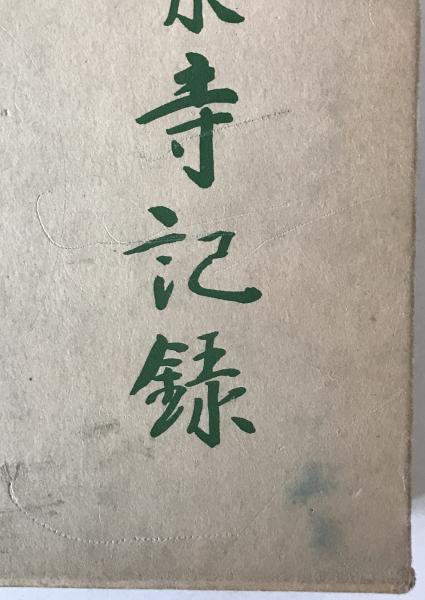 寺記録